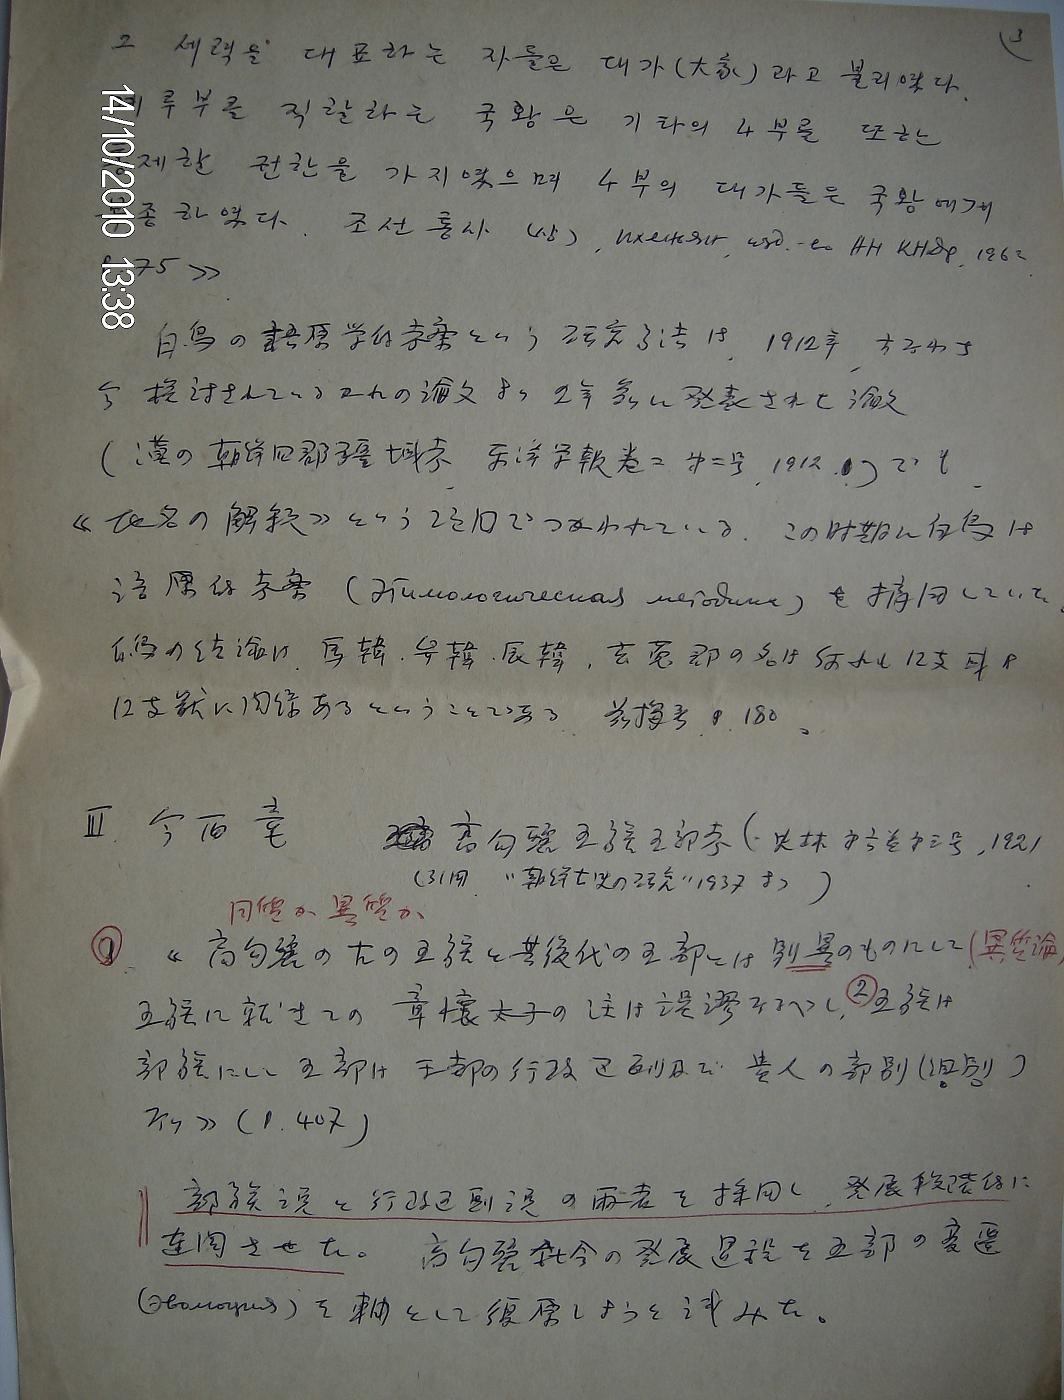 3
그 세력을 대표하는 자들은 대가(大家)라고 불리였다.
루부를 직할하는 국왕은 기타의 4부를 또한
제할 권한을 가지였으며 4부의 대가들은 국왕에게
종하였다. 조선통사 (상), изд. АН КНДР, 1962
75 »
14/10/2010 13:38
白鳥の語原学的考案という研究方法は、1912年、すなわち
今検討されているこれの論文より 年 に発表された論文
(漢の朝鮮四郡疆域考 東洋学報巻二 第二号, 1912.)でも
«地名の解釈» という で つかわれている. この時期に白鳥は
語原的考案 (этимологическая методика) を採用していた.
白鳥の結論は, 馬韓. 弁韓. 辰韓, 玄菟郡の名は何れも12支
12支獣に関係あるということである. p. 180.
III. 今西竜 高句麗五族五部考(史林 第六巻第三号, 1921
(引用 "朝鮮古史の研究" 1937 より)
同質か異質か
① « 高句麗の古の五族と其後代の五部とは別異のものにして(異質論)
五族に就きての章懐太子の注は誤謬なるべし, ② 五族は
部族にして五部は王都の行政区劃及び貴人の部別
なり» (p. 407)
部族説と行政区劃説の両者を採用し, 発展段階的に
連関させた。 高句麗社会の発展過程を五部の変遷
(эволюция)を軸として復原しようと試みた。